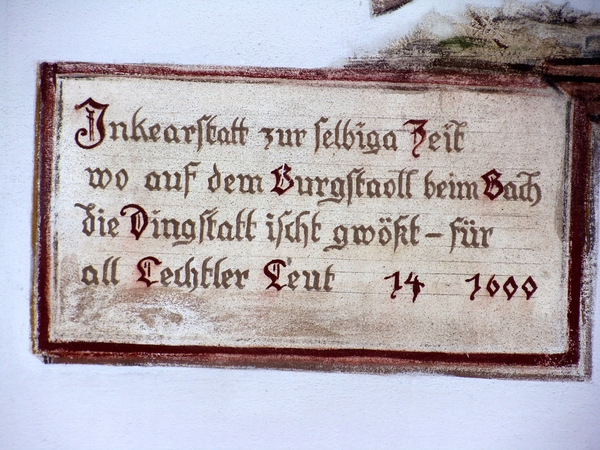 Inkearstatt zur selbiga Zeit
wo auf dem Burgstaoll beim Bach
die Dingstatt ischt gwößt - für
all Lechtler Leut 14 1600